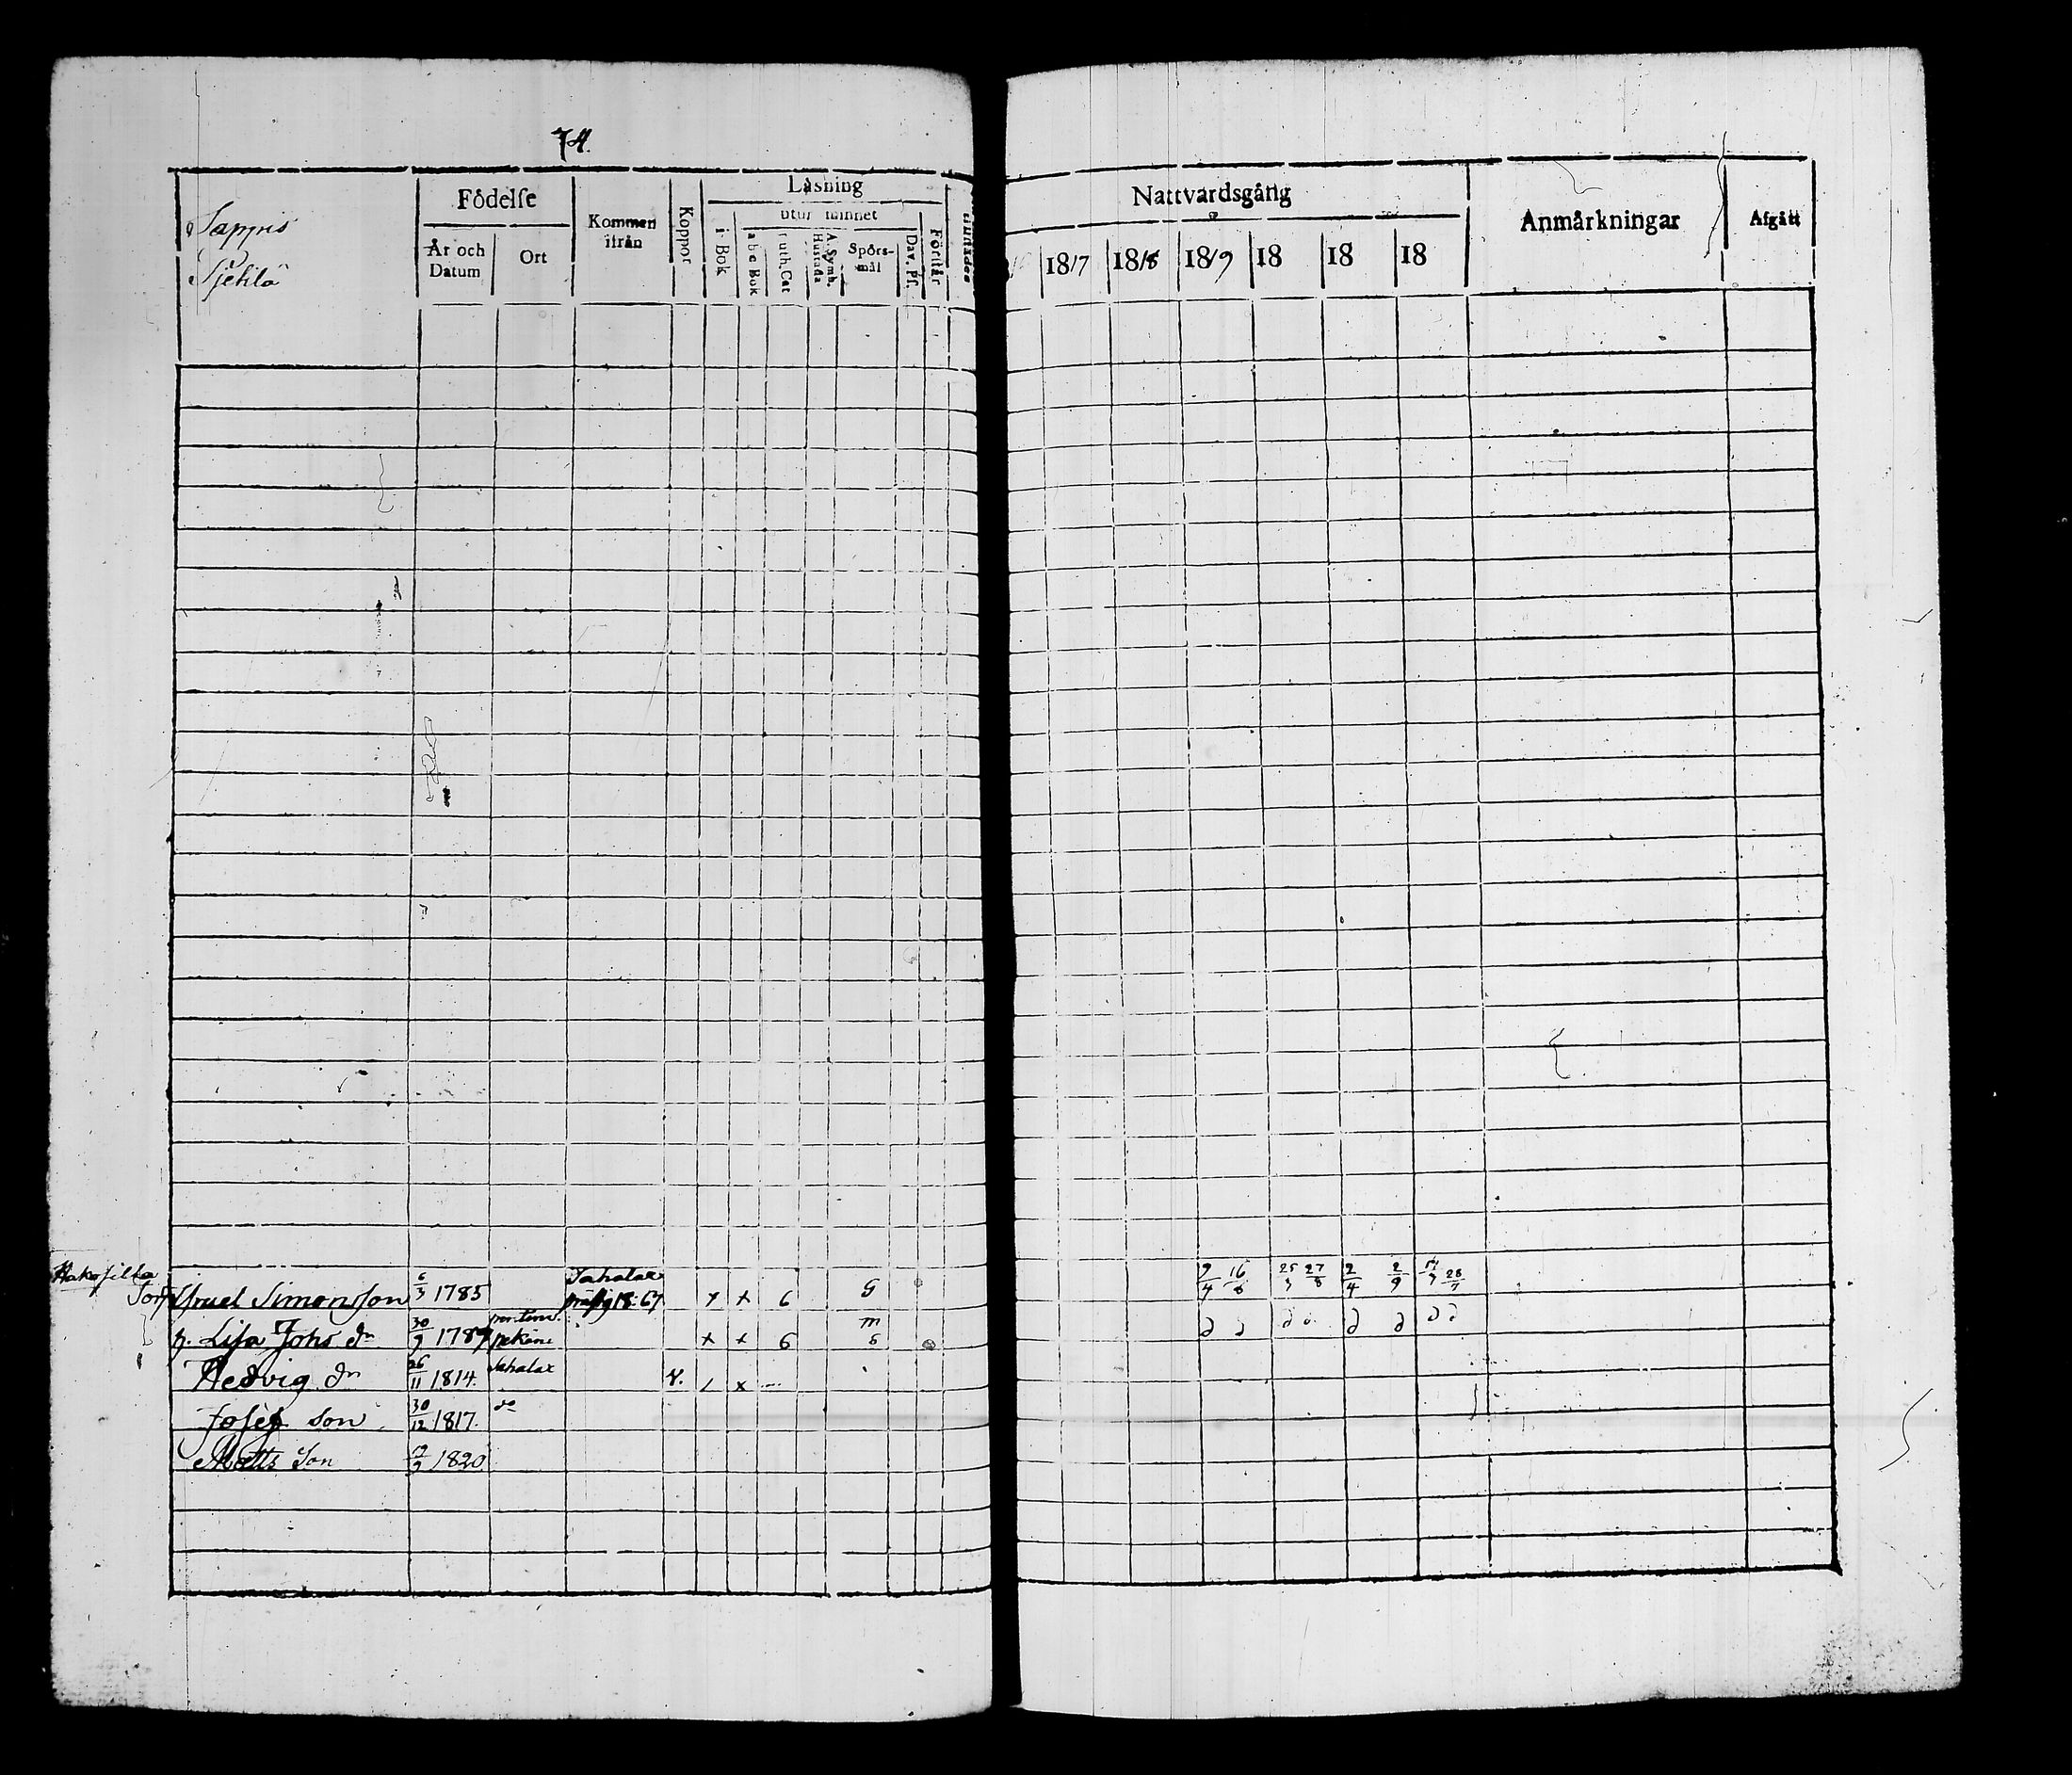 74.
Sappis
Födelse
År och Datum
Ort
Kommen ifrån
Koppor
Läsning
i Bok
utur minnet
a b c Bok
Luth. Cat
A. Symb. Hustafla
Spörsmål
Dav. Ps.
Förstår
Nattvardsgång
1817
1818
1819
18
18
18
Anmärkningar
Afgått
Torp
Israel Simonsson 6/3 1785 Sahalax 18:67 x x 6 G 9/4 16/8 25/3 27/8 2/4 2/9 28/7
h. Lisa Johs dr 30/9 1787 x x 6 m s
Hedvig dr 26/11 1814. Sahalax x
Josef Son 30/12 1817. do
Matts Son 1820